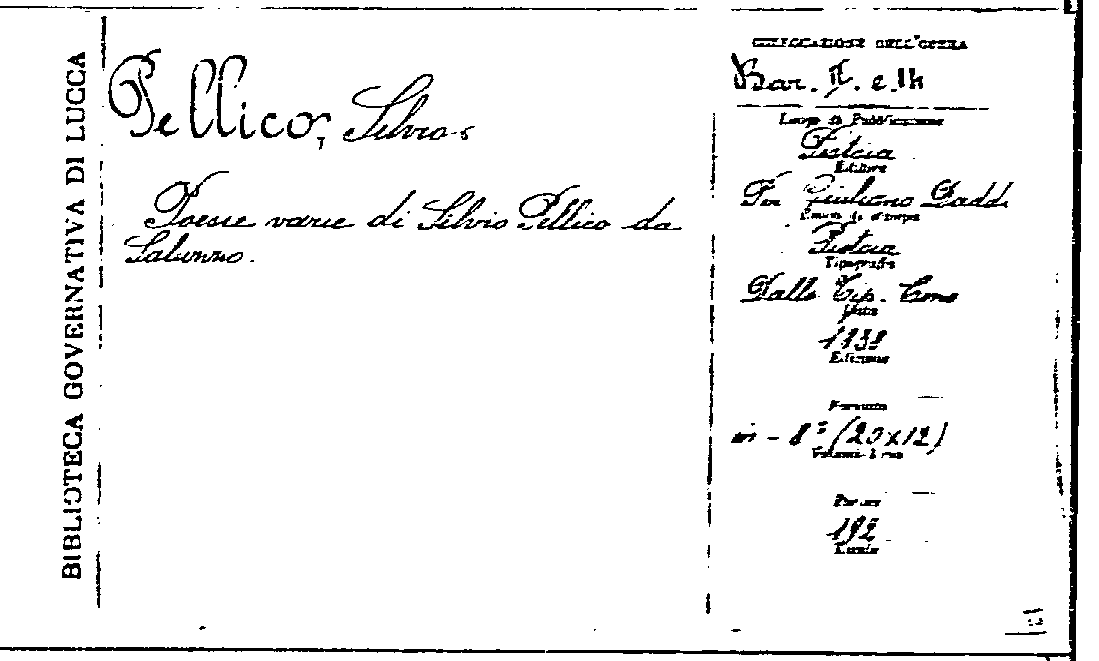 BIBLIOTECA GOVERNATIVA DI LUCCA
Pellico, Silvio
Poesie varie di Silvio Pellico da
Saluzzo.
COLLOCAZIONE DELL'OPERA
Bar.
Luogo di Pubblicazione
Pistoia
Editore
Per Giuliano Daddi
Luogo di stampa
Pistoia
Tipografia
Dalla Tip. Cino
Data
Edizione
Formato
in - 8° (20x12)
Volumi
192